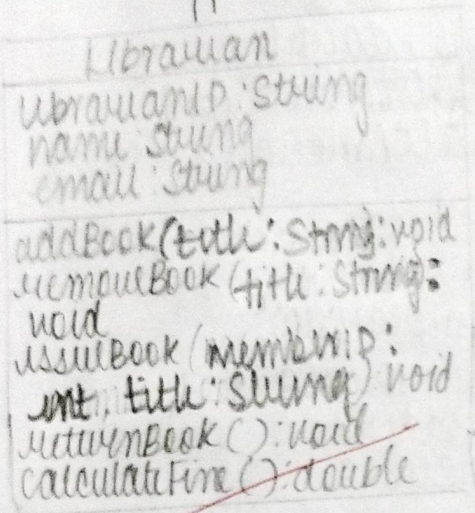 Librarian
librarianID : String
name : String
email : String
addBook(title : String : void
removeBook (title : String) :
void
issueBook (memberID :
int, title : String) : void
returnBook () : void
calculateFine () : double